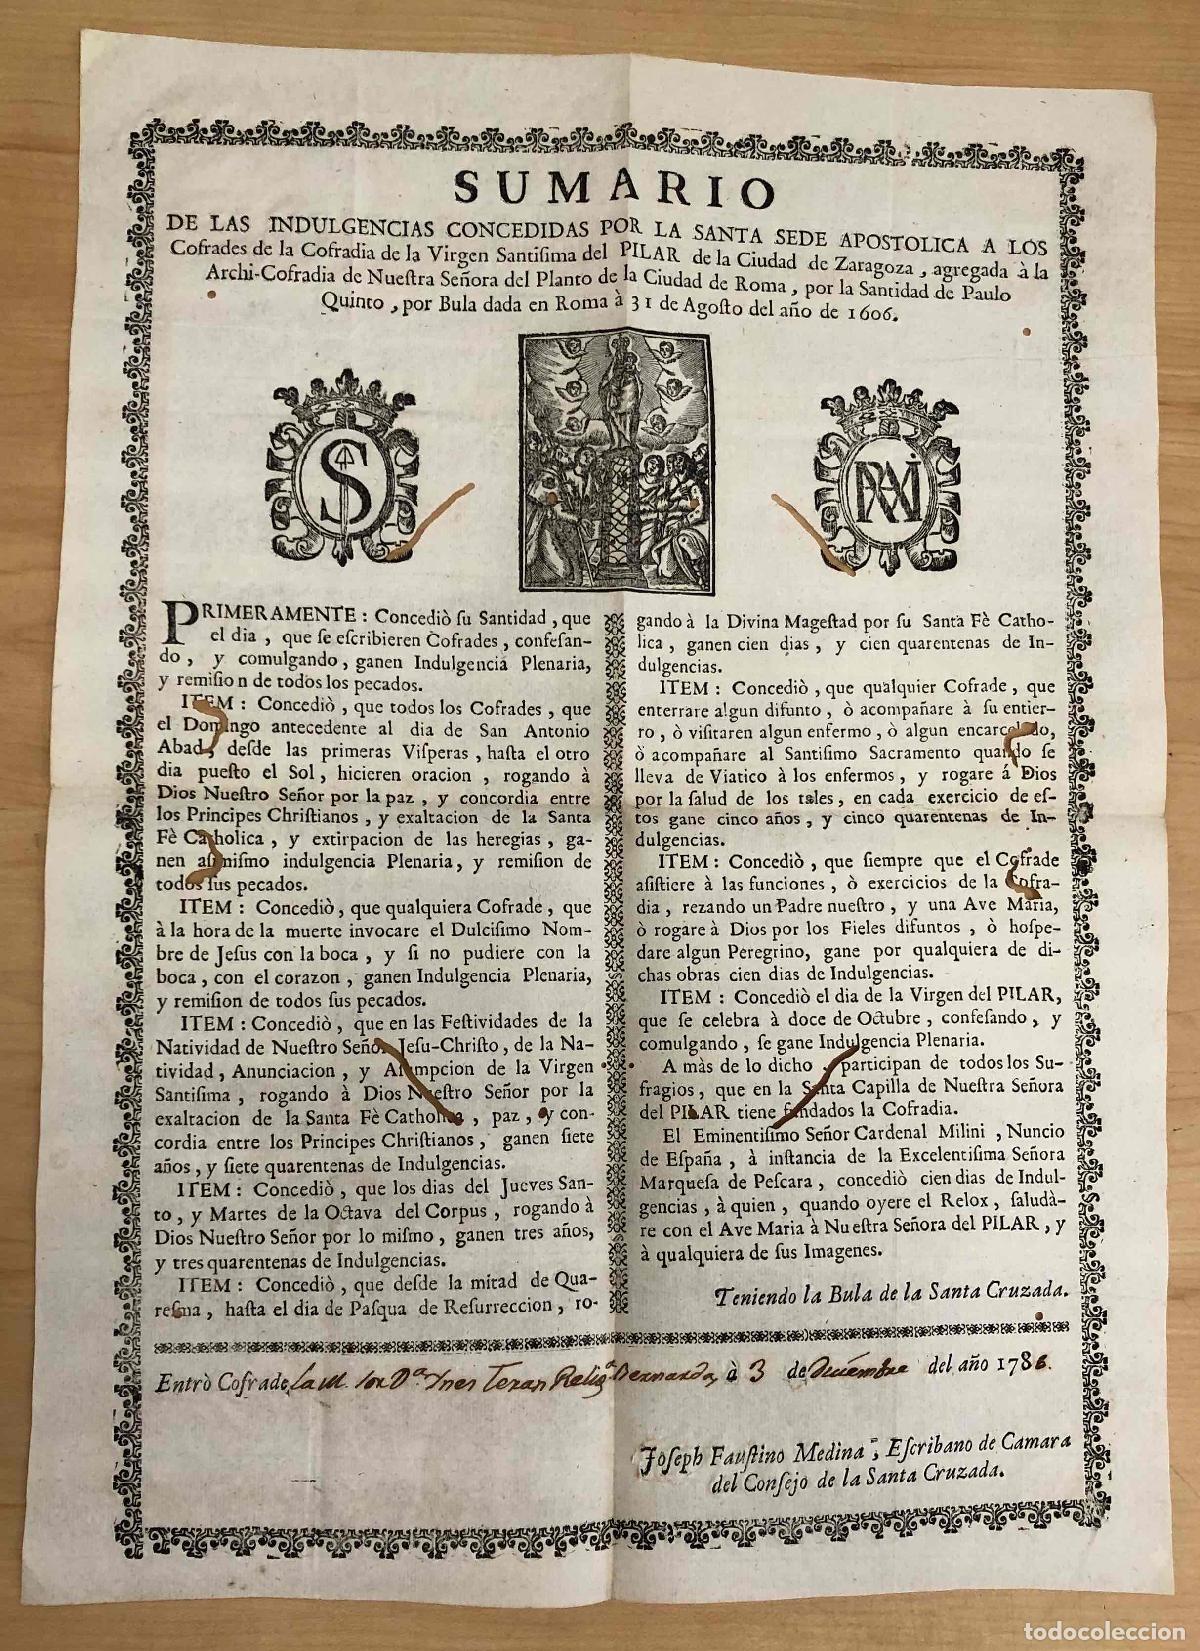 SUMARIO
DE LAS INDULGENCIAS CONCEDIDAS POR LA SANTA SEDE APOSTOLICA A LOS
Cofrades de la Cofradia de la Virgen Santiſima del PILAR de la Ciudad de Zaragoza, agregada à la
Archi-Cofradia de Nueſtra Señora del Planto de la Ciudad de Roma, por la Santidad de Paulo
Quinto, por Bula dada en Roma à 31 de Agoſto del año de 1606.
S
MAR
PRIMERAMENTE: Concediò ſu Santidad, que
el dia, que ſe eſcribieren Cofrades, confeſan-
do, y comulgando, ganen Indulgencia Plenaria,
y remiſion de todos los pecados.
ITEM: Concediò, que todos los Cofrades, que
el Domingo antecedente al dia de San Antonio
Abad, deſde las primeras Viſperas, haſta el otro
dia pueſto el Sol, hicieren oracion, rogando à
Dios Nueſtro Señor por la paz, y concordia entre
los Principes Chriſtianos, y exaltacion de la Santa
Fè Catholica, y extirpacion de las heregias, ga-
nen aſimiſmo indulgencia Plenaria, y remiſion de
todos ſus pecados.
ITEM: Concediò, que qualquiera Cofrade, que
à la hora de la muerte invocare el Dulciſimo Nom-
bre de Jeſus con la boca, y ſi no pudiere con la
boca, con el corazon, ganen Indulgencia Plenaria,
y remiſion de todos ſus pecados.
ITEM: Concediò, que en las Feſtividades de la
Natividad de Nueſtro Señor Jeſu-Chriſto, de la Na-
tividad, Anunciacion, y Aſumpcion de la Virgen
Santiſima, rogando à Dios Nueſtro Señor por la
exaltacion de la Santa Fè Catholica, paz, y con-
cordia entre los Principes Chriſtianos, ganen ſiete
años, y ſiete quarentenas de Indulgencias.
ITEM: Concediò, que los dias del Jueves San-
to, y Martes de la Octava del Corpus, rogando à
Dios Nueſtro Señor por lo miſmo, ganen tres años,
y tres quarentenas de Indulgencias.
ITEM: Concediò, que deſde la mitad de Qua-
reſma, haſta el dia de Paſqua de Reſurreccion, ro-
gando à la Divina Mageſtad por ſu Santa Fè Catho-
lica, ganen cien dias, y cien quarentenas de In-
dulgencias.
ITEM: Concediò, que qualquier Cofrade, que
enterrare algun difunto, ò acompañare à ſu entier-
ro, ò viſitaren algun enfermo, ò algun encarcelado,
ò acompañare al Santiſimo Sacramento quando ſe
lleva de Viatico à los enfermos, y rogare á Dios
por la ſalud de los tales, en cada exercicio de eſ-
tos gane cinco años, y cinco quarentenas de In-
dulgencias.
ITEM: Concediò, que ſiempre que el Cofrade
aſiſtiere à las funciones, ò exercicios de la Cofra-
dia, rezando un Padre nueſtro, y una Ave Maria,
ò rogare à Dios por los Fieles difuntos, ò hoſpe-
dare algun Peregrino, gane por qualquiera de di-
chas obras cien dias de Indulgencias.
ITEM: Concediò el dia de la Virgen del PILAR,
que ſe celebra à doce de Octubre, confeſando, y
comulgando, ſe gane Indulgencia Plenaria.
A màs de lo dicho, participan de todos los Su-
fragios, que en la Santa Capilla de Nueſtra Señora
del PILAR tiene fundados la Cofradia.
El Eminentiſimo Señor Cardenal Milini, Nuncio
de Eſpaña, à inſtancia de la Excelentiſima Señora
Marqueſa de Peſcara, concediò cien dias de Indul-
gencias, à quien, quando oyere el Relox, ſaludà-
re con el Ave Maria à Nueſtra Señora del PILAR, y
à qualquiera de ſus Imagenes.
Teniendo la Bula de la Santa Cruzada.
Entrò Cofrade la M. Sor Dª. Ynes Teran Religª. Bernarda, à 3 de Diciembre del año 1786.
Joſeph Fauſtino Medina, Eſcribano de Camara
del Conſejo de la Santa Cruzada.
todocoleccion